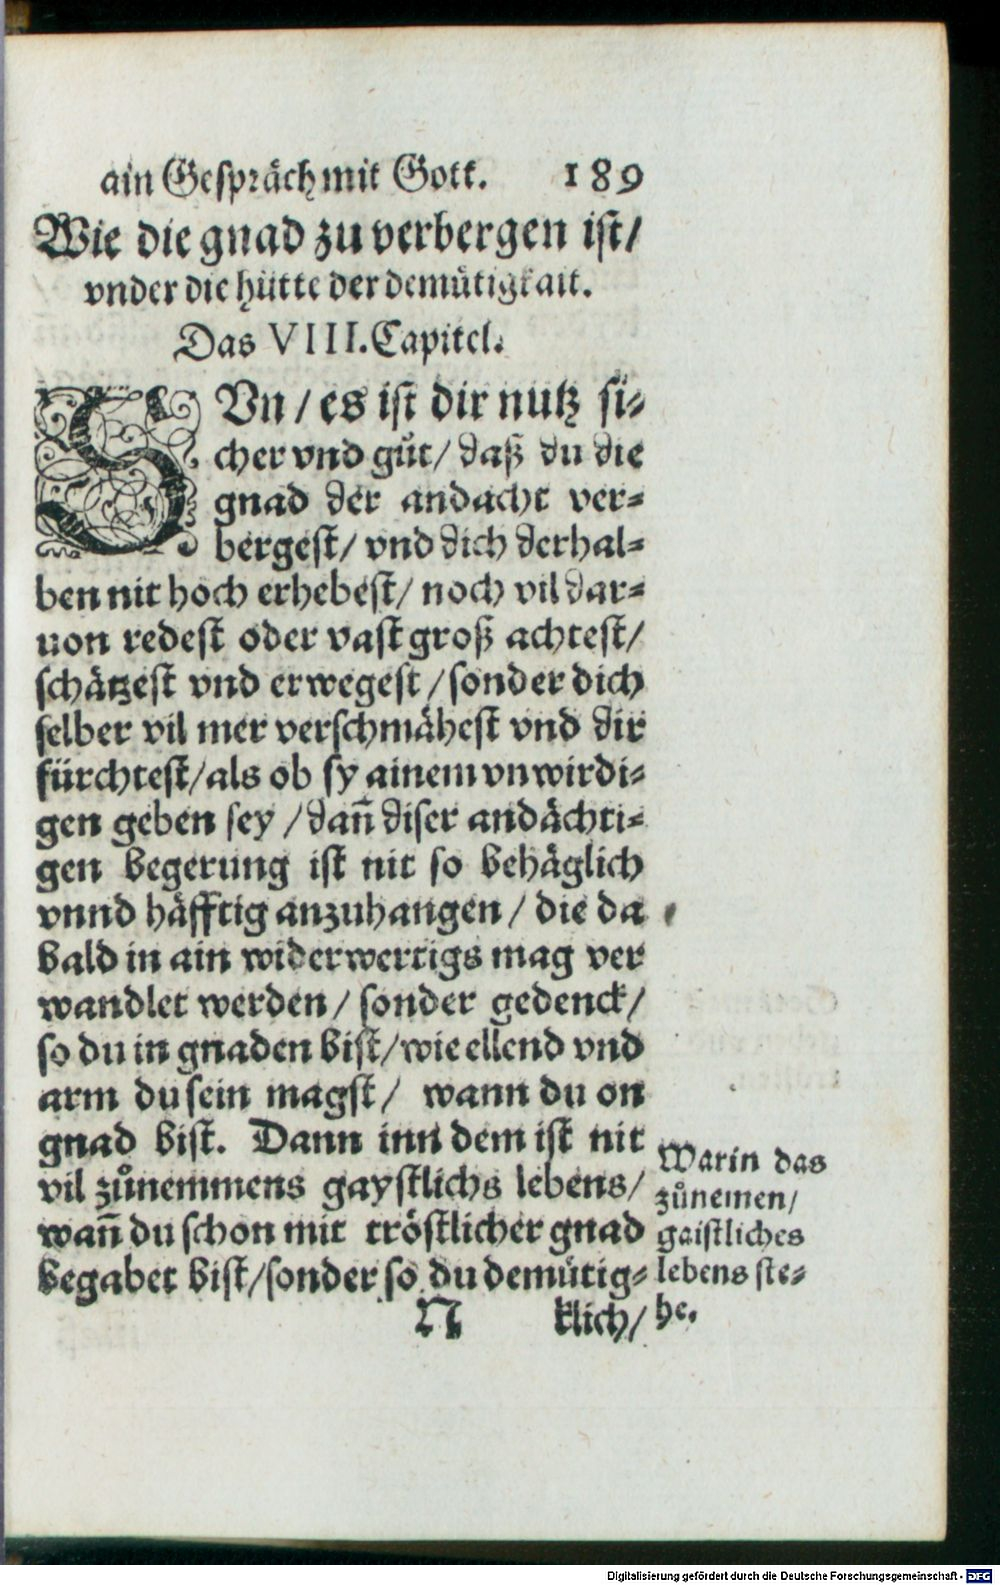 ain Gespräch mit Gott. 189
Wie die gnad zu verbergen ist/
vnder die hütte der demütigkait.
Das VIII. Capitel.
SVn / es ist dir nutz si-
cher vnd gůt / daß du die
gnad der andacht ver-
bergest / vnd dich derhal-
ben nit hoch erhebest / noch vil dar-
uon redest oder vast groß achtest /
schätzest vnd erwegest / sonder dich
selber vil mer verschmähest vnd dir
fürchtest / als ob sy ainem vnwirdi-
gen geben sey / dañ diser andächti-
gen begerung ist nit so behäglich
vnnd häfftig anzuhangen / die da
bald in ain widerwertigs mag ver
wandlet werden / sonder gedenck /
so du in gnaden bist / wie ellend vnd
arm du sein magst / wann du on
gnad bist. Dann inn dem ist nit
vil zůnemmens gaystlichs lebens /
wañ du schon mit tröstlicher gnad
begabet bist / sonder so du demütig-
N klich /
Warin das
zůnemen /
gaistliches
lebens ste-
he.
Digitalisierung gefördert durch die Deutsche Forschungsgemeinschaft - DFG